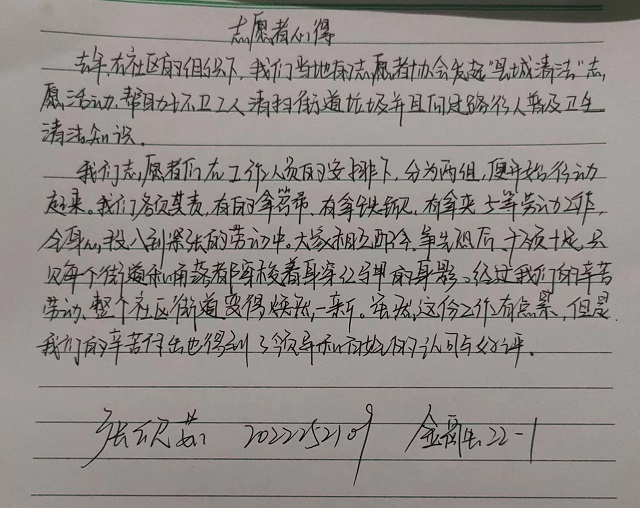 志愿者心得
去年,在社区的组织下,我们当地的志愿者协会发起“县城清洁”志
愿活动,帮助环卫工人清扫街道垃圾并且向过路行人普及卫生
清洁知识。
我们志愿者们在工作人员的安排下,分为两组,便开始行动
起来。我们各负其责,有的拿笤帚,有拿铁锨,有拿夹子等劳动工作,
全身心投入到紧张的劳动中。大家相互配合,争先恐后,干劲十足,只
见每个街道和角落都穿梭着身穿红马甲的身影。经过我们的辛苦
劳动,整个社区街道变得焕然一新。虽然,这份工作有点累,但是
我们的辛苦付出也得到了领导和的认可与好评。
张 茹 2022252109 22-1